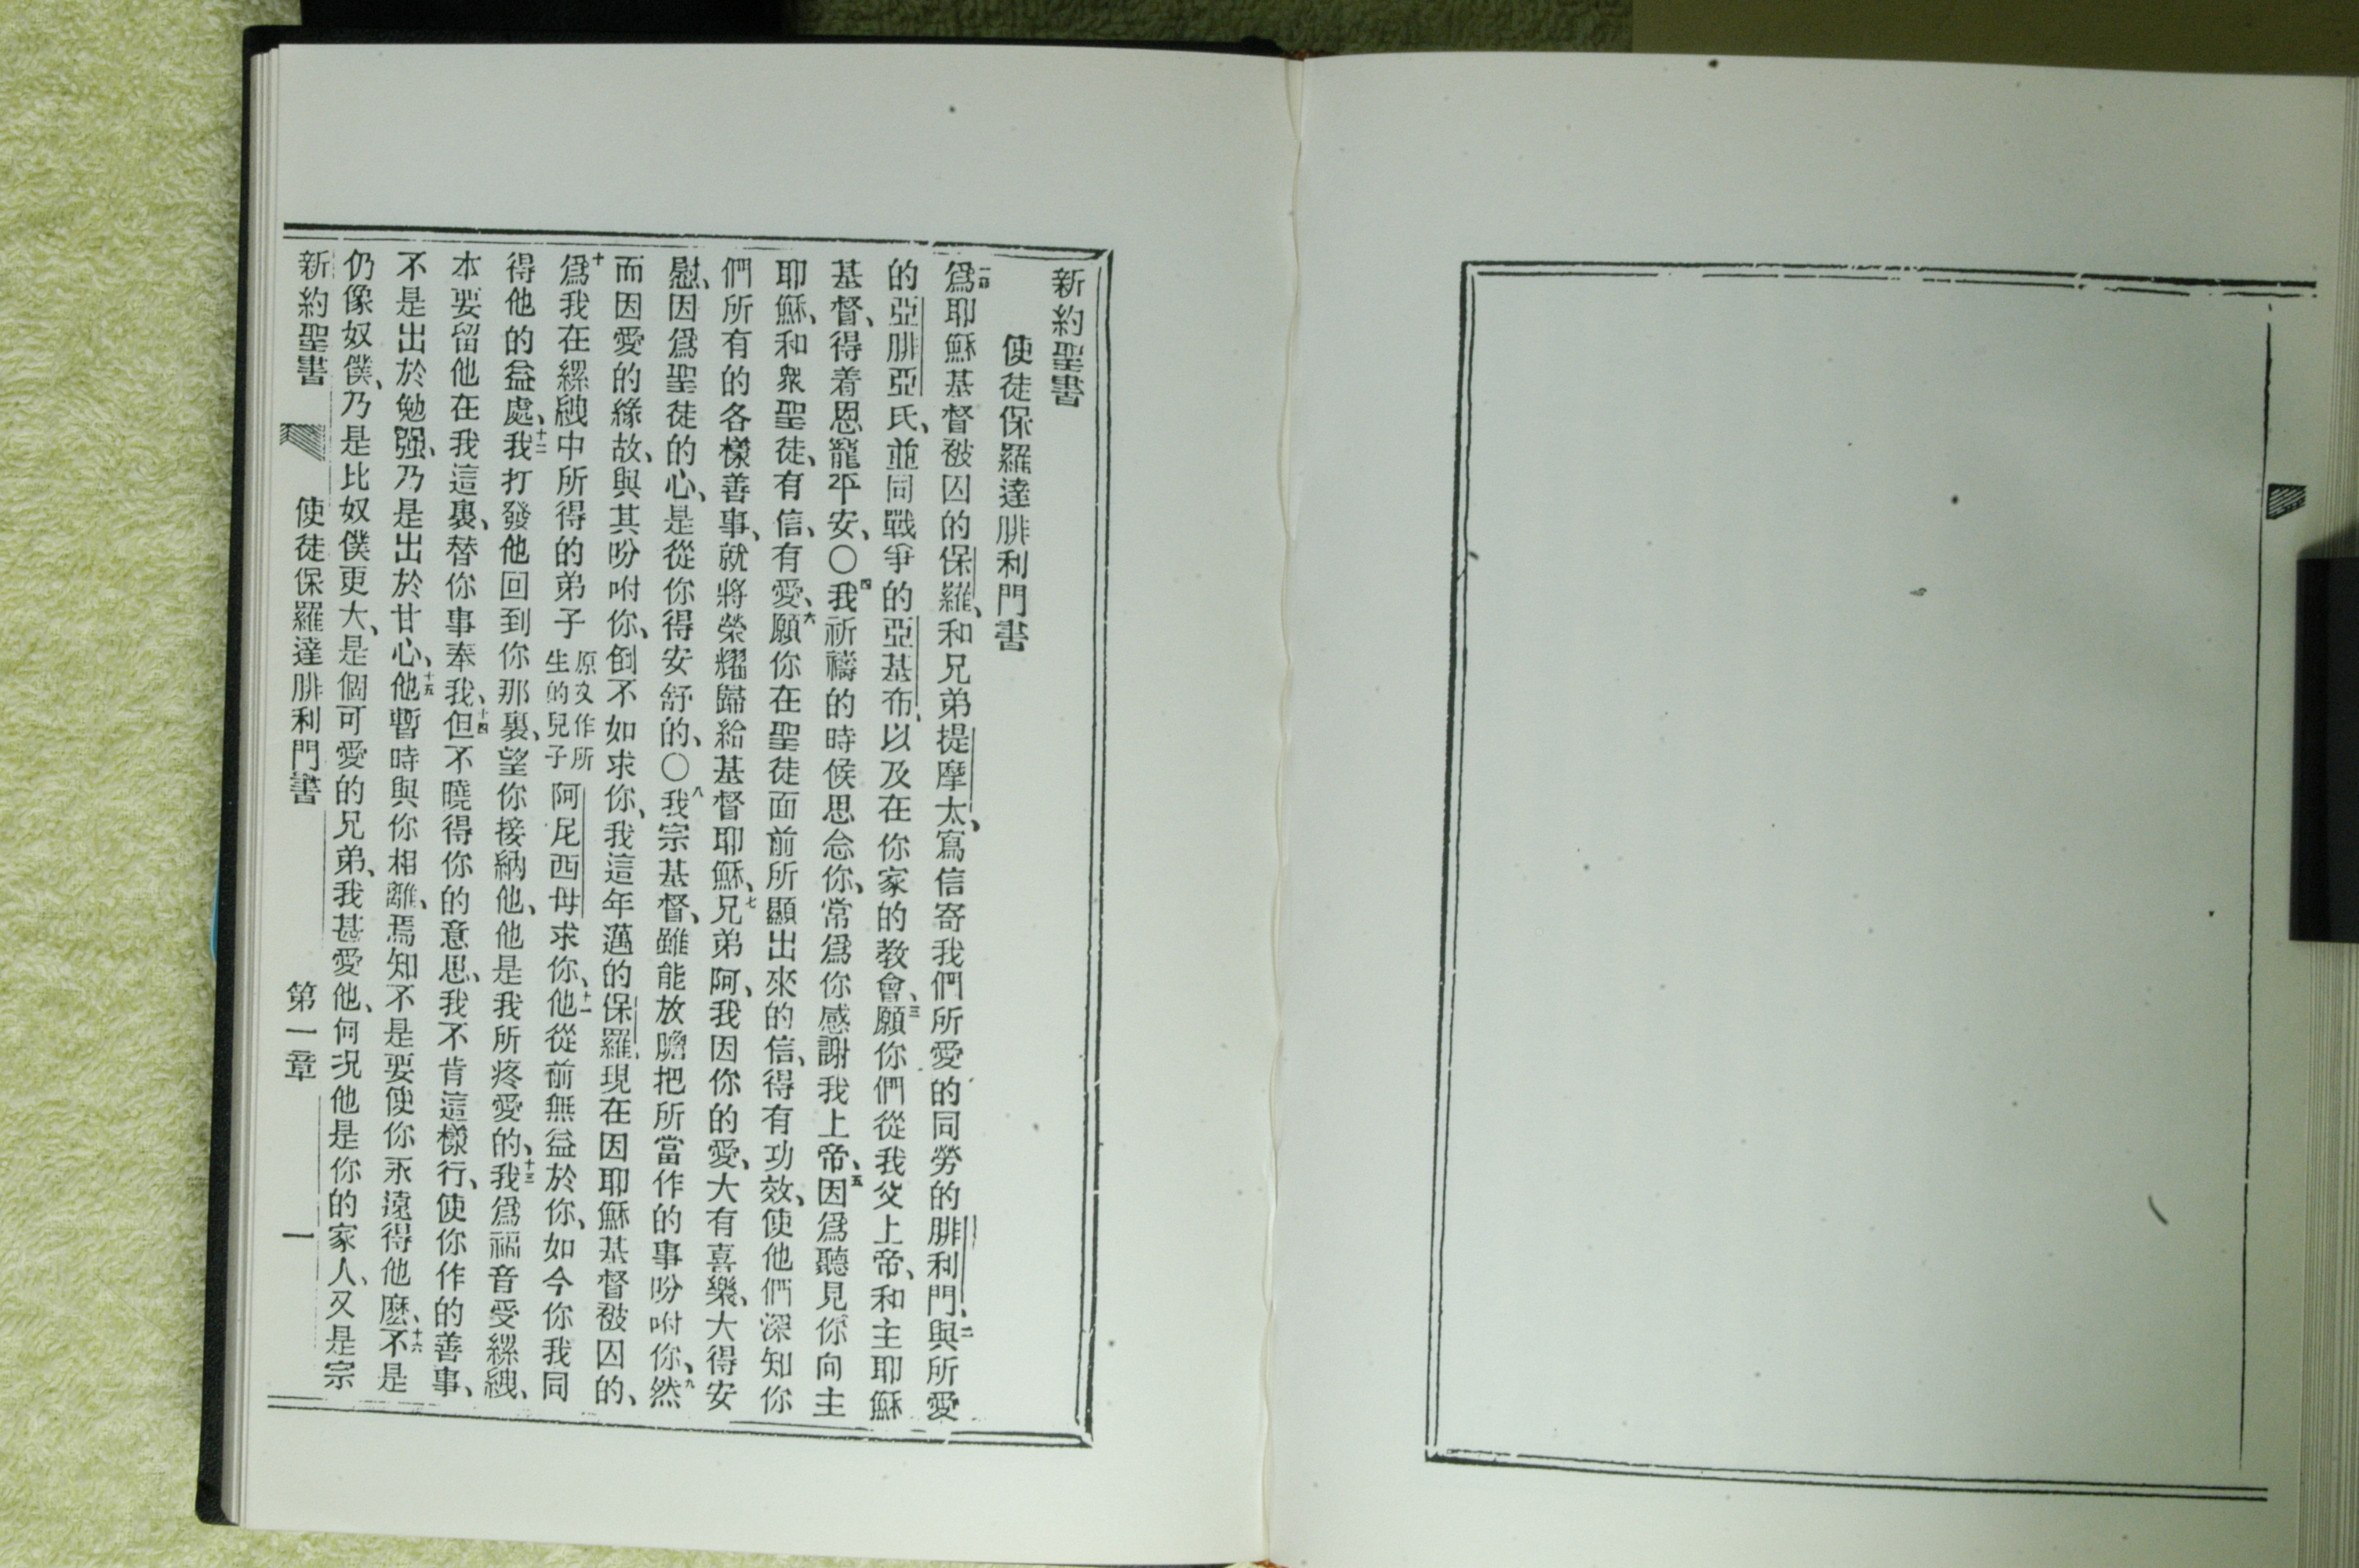 新約聖書
使徒保羅達腓利門書
一節爲耶穌基督被囚的保羅、和兄弟提摩太、寫信寄我們所愛的同勞的腓利門、二與所愛
的亞腓亞氏、並同戰爭的亞基布、以及在你家的教會、三願你們從我父上帝、和主耶穌
基督、得着恩寵平安、〇四我祈禱的時候思念你、常爲你感謝我上帝、五因爲聽見你向主
耶穌、和衆聖徒、有信、有愛、六願你在聖徒面前所顯出來的信、得有功效、使他們深知你
們所有的各樣善事、就將榮耀歸給基督耶穌、七兄弟阿、我因你的愛、大有喜樂、大得安
慰、因爲聖徒的心、是從你得安舒的、〇八我宗基督、雖能放膽把所當作的事吩咐你、九然
而因愛的緣故、與其吩咐你、倒不如求你、我這年邁的保羅、現在因耶穌基督被囚的、
十爲我在縲絏中所得的弟子原文作所生的兒子阿尼西母求你、十一他從前無益於你、如今你我同
得他的益處、十二我打發他回到你那裏、望你接納他、他是我所疼愛的、十三我爲福音受縲絏、
本要留他在我這裏、替你事奉我、十四但不曉得你的意思、我不肯這樣行、使你作的善事、
不是出於勉强、乃是出於甘心、十五他暫時與你相離、焉知不是要使你永遠得他麼、十六不是
仍像奴僕、乃是比奴僕更大、是個可愛的兄弟、我甚愛他、何况他是你的家人、又是宗
新約聖書 使徒保羅達腓利門書 第一章 一